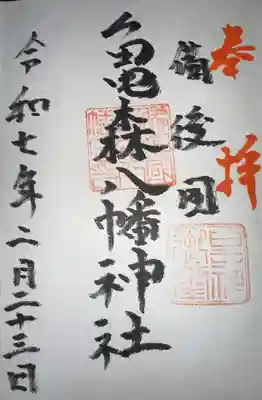 奉拝
備後国
亀森八幡神社
令和七年二月二十三日